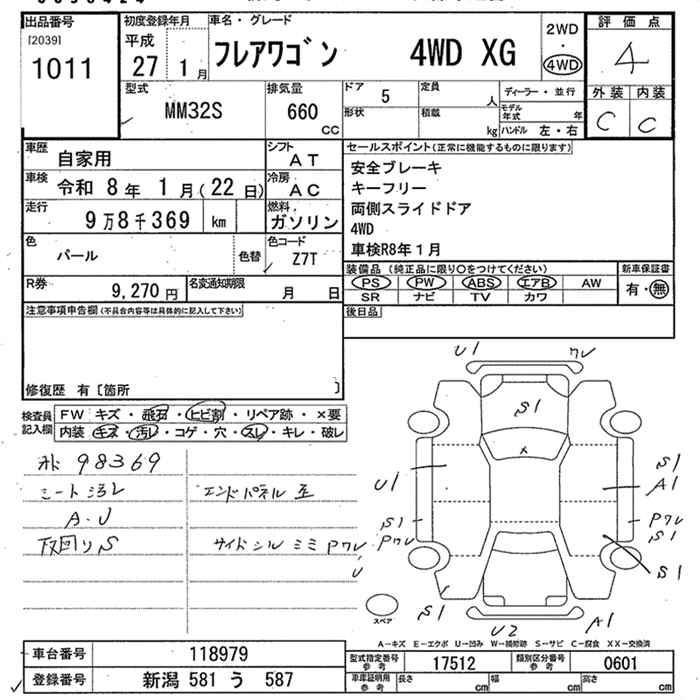 出品番号
[2039]
1011
初度登録年月
平成
27 1月
車名・グレード
フレアワゴン 4WD XG
2WD
・
4WD
評価点
4
外装 内装
C C
型式
MM32S
排気量
660
cc
ドア 5
形状
定員
人
積載
kg
ディーラー・並行
モデル年式 年
ハンドル 左・右
車歴
自家用
シフト
AT
車検
令和 8年 1月(22日)
冷房
AC
走行
9万8千369 km
燃料
ガソリン
色
パール
色替
色コード
Z7T
R券
9,270円
名変通知期限
月 日
セールスポイント(正常に機能するものに限ります)
安全ブレーキ
キーフリー
両側スライドドア
4WD
車検R8年1月
装備品(純正品に限り○をつけてください)
PS PW ABS エアB AW
SR ナビ TV カワ
新車保証書
有・無
後日品
注意事項申告欄(不具合内容等は具体的に記入して下さい)
修復歴 有〔箇所 〕
検査員記入欄
FW キズ・飛石・ヒビ割・リペア跡・×要
内装 キズ・汚レ・コゲ・穴・スレ・キレ・破レ
98369
シート汚レ
A・U
下回りS
エンドパネル
サイドシル ミミ Pワレ
U
U1 ワレ
S1
U1
S1
Pワレ
S1
A1
Pワレ
S1
S1
S1
U2
A1
スペア
A-キズ E-エクボ U-凹み W-補修跡 S-サビ C-腐食 XX-交換済
車台番号 118979
登録番号 新潟 581 う 587
型式指定番号参考 17512
類別区分番号参考 0601
車庫証明用参考
長さ cm
幅 cm
高さ cm